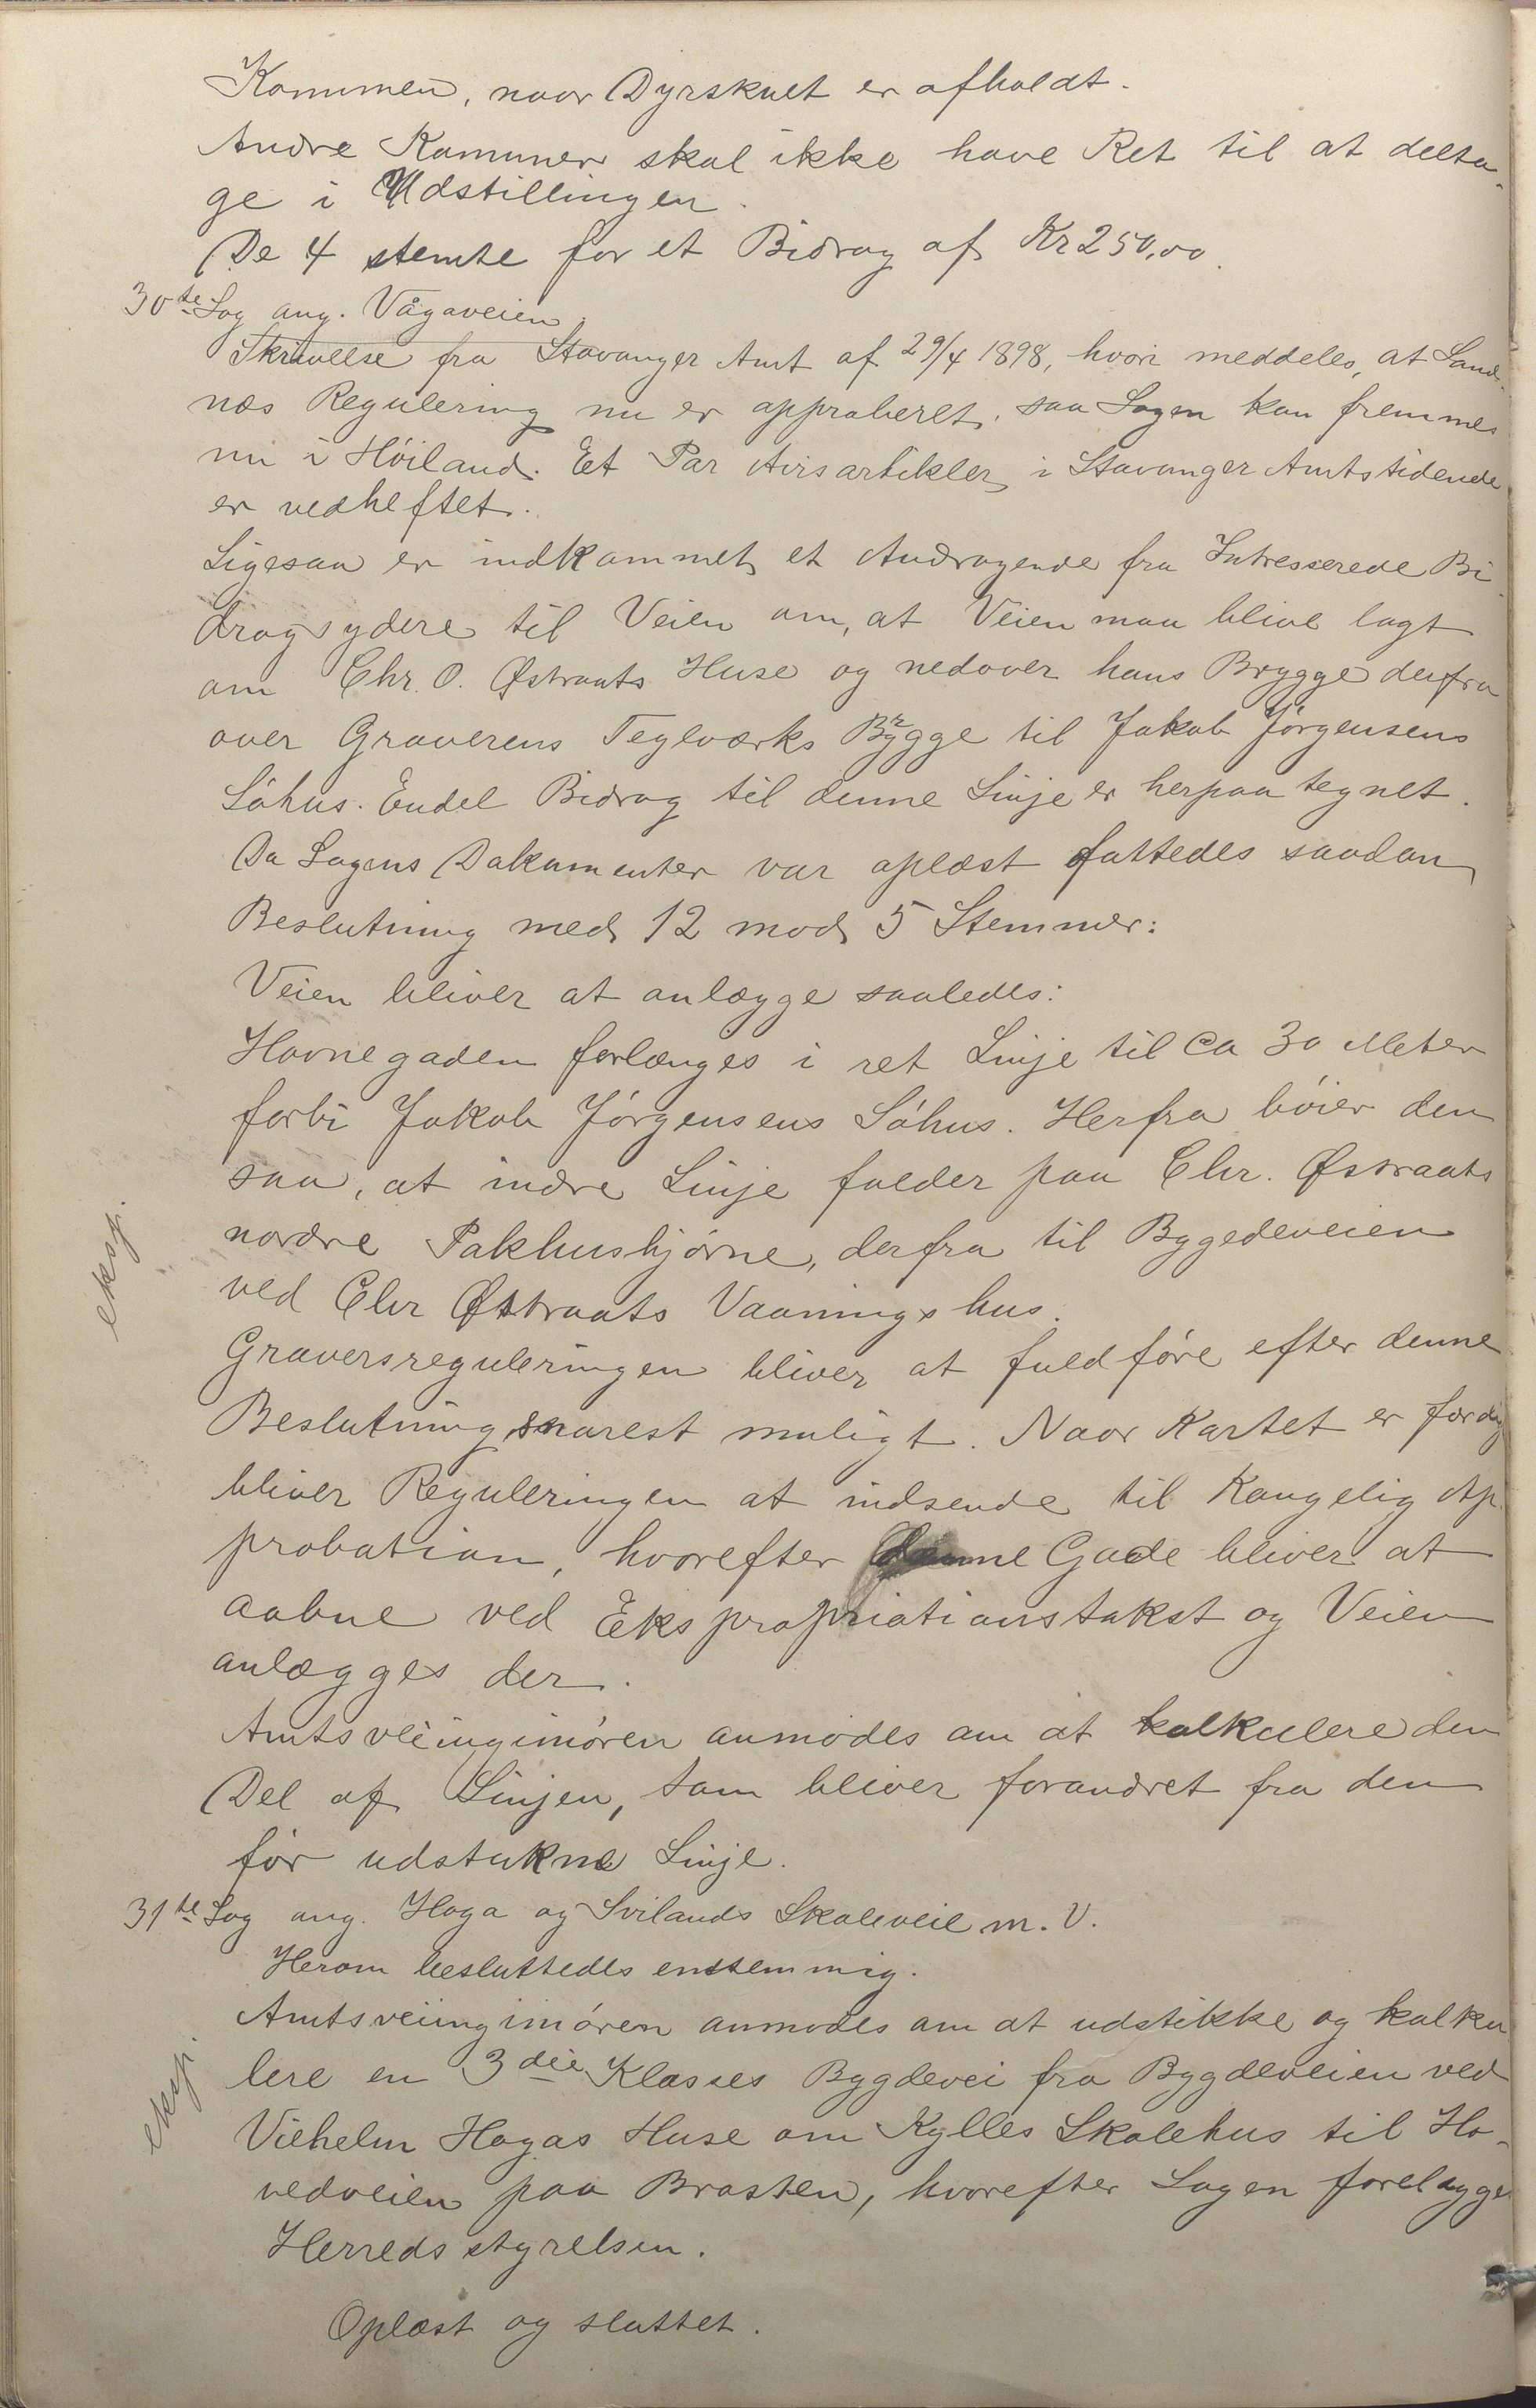 Kommunen, naar Dyrskuet er afholdt.
Andre Kommuner skal ikke have Ret til at delta-
ge i Udstillingen.
De 4 stemte for et Bidrag af Kr 250,00.
30te Sag ang. Vågaveien.
Skrivelse fra Stavanger Amt af 29/4 1898, hvori meddeles, at Sand-
næs Regulering nu er approberet, saa Sagen kan fremmes
nu i Höiland. Et Par Avisartikler i Stavanger Amtstidende
er vedheftet.
Ligesaa er indkommet et Andragende fra Intresserede Bi-
dragsydere til Veien om, at Veien maa blive lagt
om Chr. O. Østraats Huse og nedover hans Brygge derfra
over Graverens Teglværks Brygge til Jakob Jörgensens
Söhus. Endel Bidrag til denne Linje er herpaa tegnet.
Da Sagens Dokumenter var oplæst fattedes saadan
Beslutning med 12 mod 5 Stemmer:
Veien bliver at anlægge saaledes:
Havnegaden forlænges i ret Linje til ca 30 Meter
forbi Jakob Jörgensens Söhus. Herfra böier den
saa, at indre Linje falder paa Chr. Østraats
nordre Pakhushjörne, derfra til Bygedeveien
ved Chr Østraats Vaaningshus.
Graversreguleringen bliver at fuldföre efter denne
Beslutning snarest muligt. Naar Kartet er færdig
bliver Reguleringen at indsende til Kongelig Ap-
probation, hvorefter denne Gade bliver at
aabne ved Ekspropriationstakst og Veien
anlægges der.
eksp.
Amtsveiinginiören anmodes om at kalkulere den
Del af Linjen, som bliver forandret fra den
för udstukne Linje.
31te Sag ang. Hoga og Svilands Skoleveie m. V.
Herom besluttedes enstemmig.
Amtsveiinginiören anmodes om at udstikke og kalku
lere en 3die Klasses Bygdevei fra Bygdeveien ved
Vilhelm Hogas Huse om Kylles Skolehus til Ho-
vedveien paa Brasten, hvorefter Sagen forelægges
Herredsstyrelsen.
eksp.
Oplæst og sluttet.